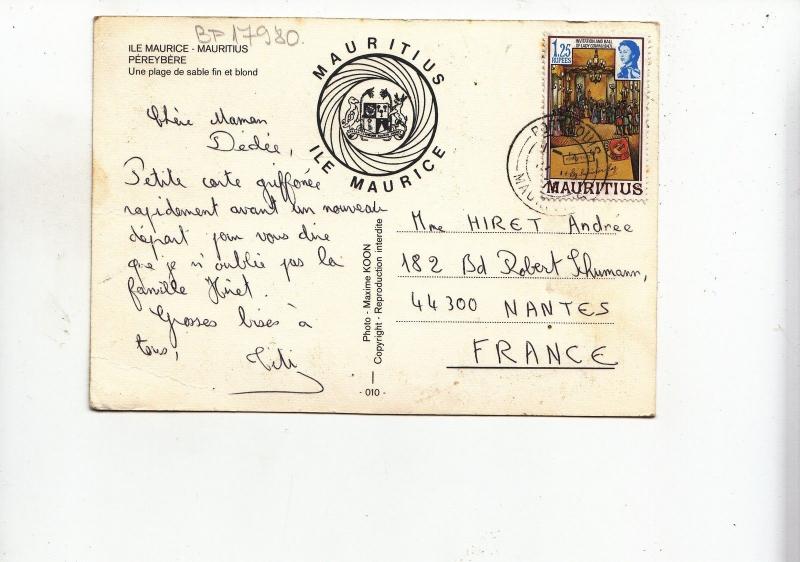 BP 17980.
ILE MAURICE - MAURITIUS
PÉREYBÈRE
Une plage de sable fin et blond
MAURITIUS
ILE MAURICE
1.25
RUPEES
INVITATION AND BALL
OF LADY GOMM 1847
MAURITIUS
Chère Maman
Dédée,
Petite carte griffonée
rapidement avant un nouveau
départ pour vous dire
que je n'oublie pas la
famille Hiret.
Grosses bises à
tous,
Titi
Photo - Maxime KOON
Copyright - Reproduction interdite
- 010 -
Mme HIRET Andrée
182 Bd Robert Schumann,
44300 NANTES
FRANCE